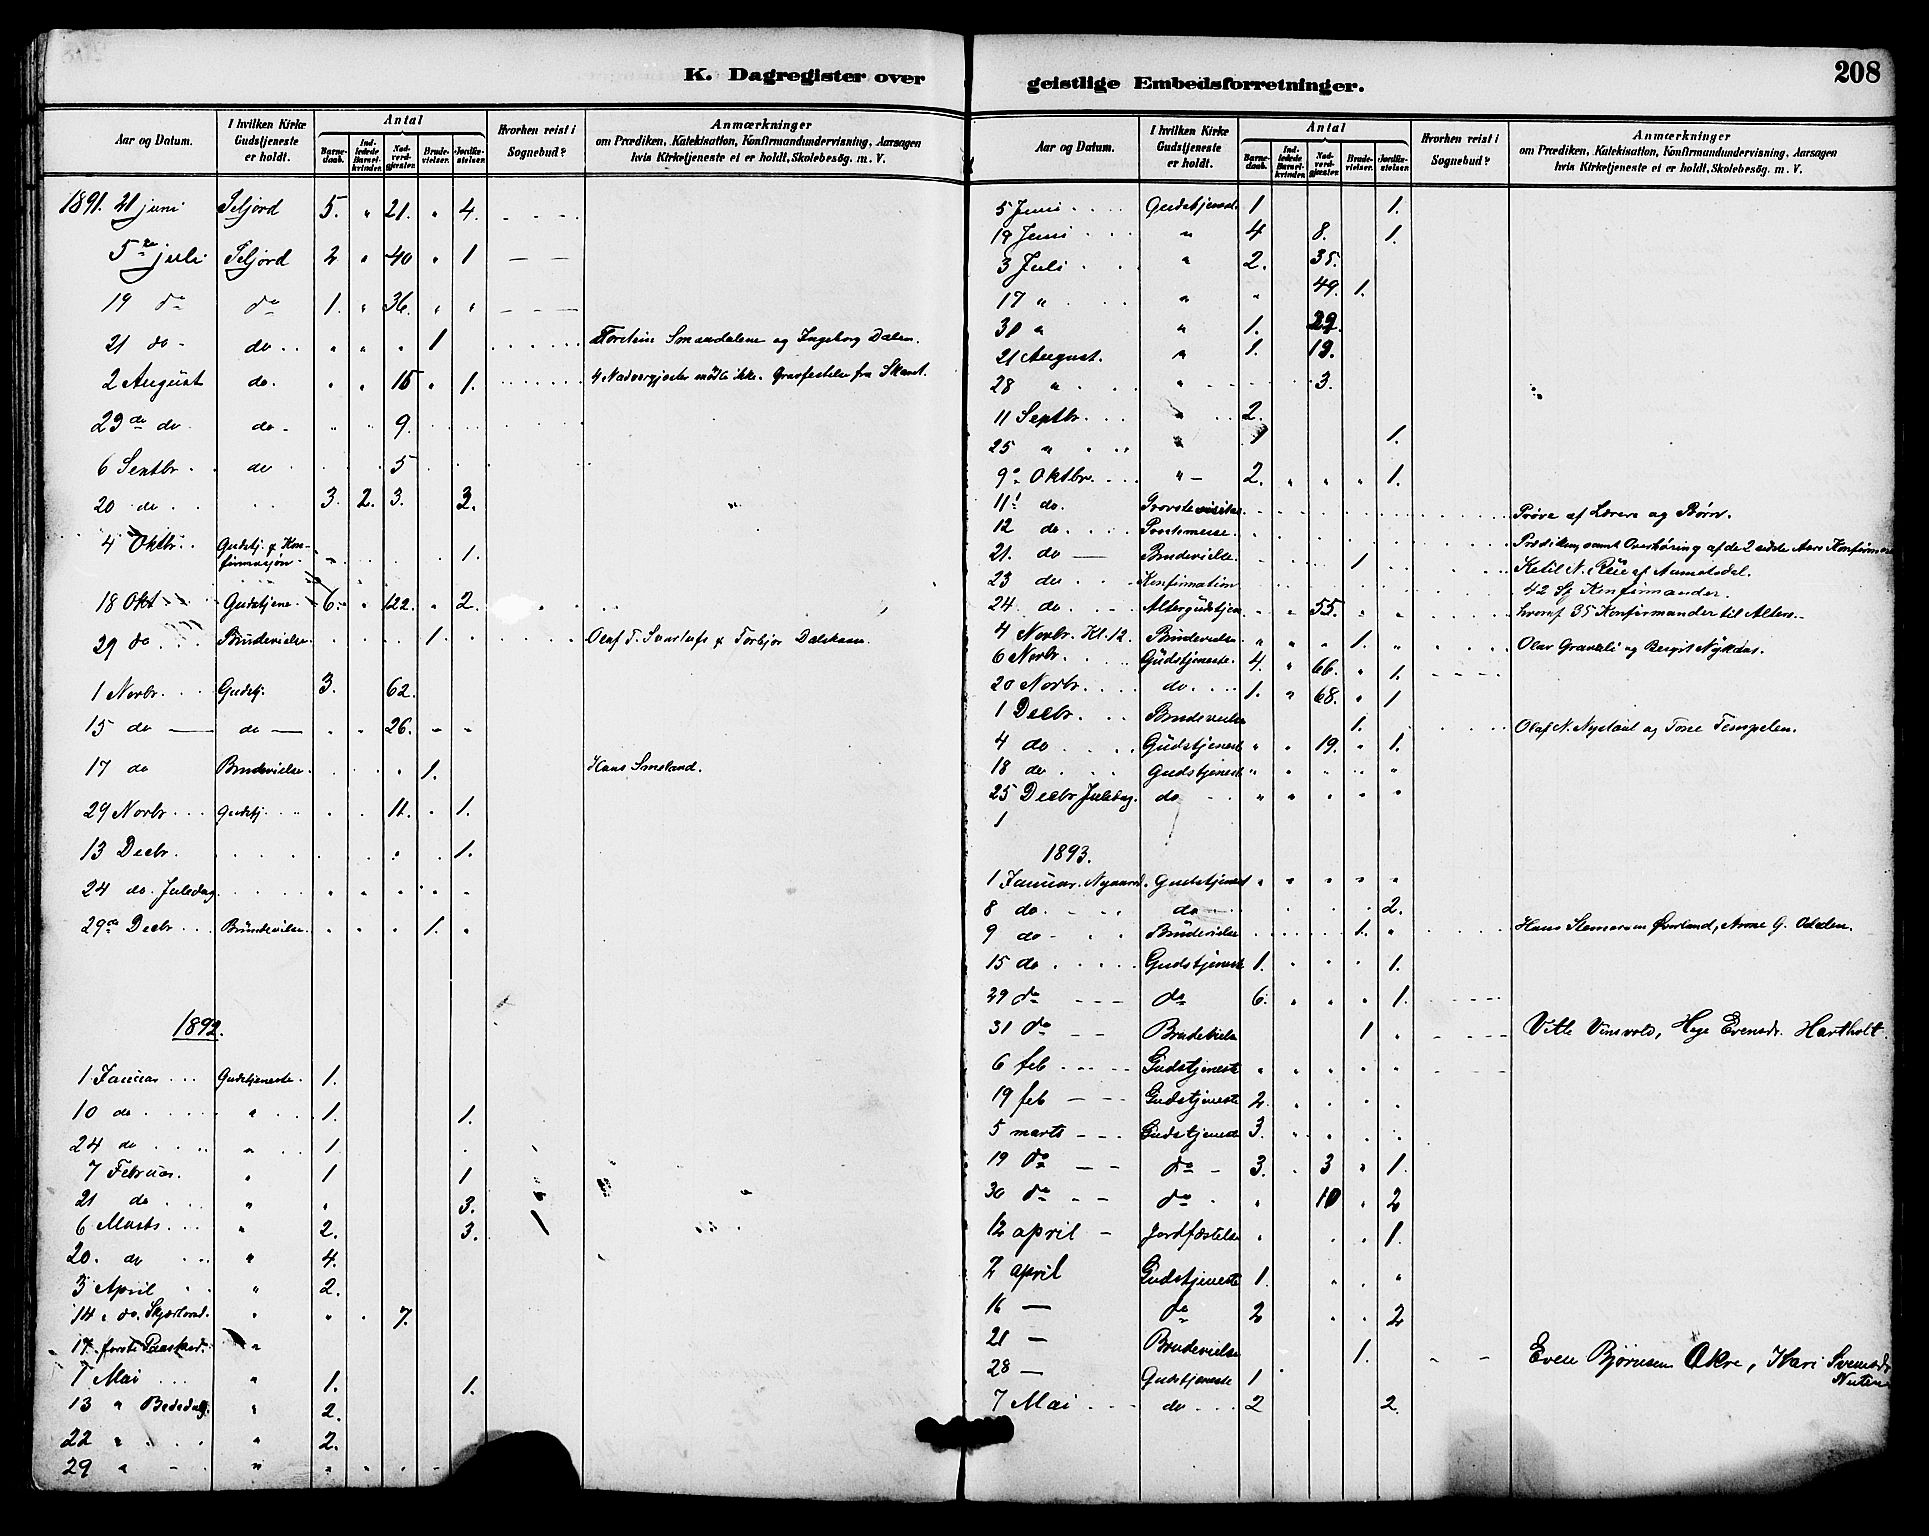 K. Dagregister over
geistlige Embedsforretninger.
208
Aar og Datum.
I hvilken Kirke Gudstjeneste er holdt.
Antal
Barnedaab.
Indledede Barselkvinder.
Nadverdgjester.
Brudevielser.
Jordfæstelser.
Hvorhen reist i Sognebud?
Anmærkninger
om Prædiken, Katekisation, Konfirmandundervisning, Aarsagen
hvis Kirketjeneste ei er holdt, Skolebesög. m. V.
1891. 21 juni Seljord 5. " 21. " 4. - - -
5te juli Seljord 2 " 40 " 1 - -
19 do do 1. " 36. " " - - -
21 do - do .. " " . 1 Torstein Smaadalene og Ingeborg Dalen.
2 August do. . " 15 " 1. 4 Nadvergjester mödte ikke. Gravfestelse fra
29de do do - " . 9.
6 Septbr. . do . . . 5
20 do . . . 3. 2. 3. 3.
4 Oktbr. . Gudstj. & Kon-
firmasjon . 1.
18 Okt Gudstjene. 6. " 122. " 2.
29 do . . Brudevielse. . . . 1. Olaf T. & Torbjør
1 Novbr. . . Gudstj. 3. 62.
15 do — do — . . 26. - -
17 do Brudevielse. . . . 1. Hans Smeland.
29 Novbr . . . Gudstj. . . . 11. . 1.
13 Decbr. . . . . . . 1.
24 do. Juledag. . . . . . . .
29de Decbr . . . Brudevielse. . . . 1. .
1892.
1 Januar . . . Gudstjeneste. 1.
10 do . . . . " . . 1. 1.
24 do . . . . " . 1. .
7 Februar. " 1 1
21 do . . . " " 3.
6 Marts . . . " 2. 3.
20. do . . . " 4.
3 April . . " 2.
14 " do. Skjærtorsd. " " . 7.
17 første Paaskед. "
1 Mai . . . " 1. 1.
13 " Bededag. " 2.
22 " . . . " 2.
29 " - . " " . . -
Aar og Datum.
I hvilken Kirke Gudstjeneste er holdt.
Antal
Barnedaab.
Indledede Barselkvinder.
Nadverdgjester.
Brudevielser.
Jordfæstelser.
Hvorhen reist i Sognebud?
Anmærkninger
om Prædiken, Katekisation, Konfirmandundervisning, Aarsagen
hvis Kirketjeneste ei er holdt, Skolebesög. m. V.
5 Juni . . . . Gudstjenest. 1 1.
19 Juni . . . " 4 8. 1.
3 Juli . . . " 2. 35.
17 " . . . " " 49. 1.
30 " " 1. 29.
21 August. " 1. 19.
28 " . . " . . . 3.
11 Septbr. . . " . . 2.
25 " . . . " 1 1.
9de Oktbr. . . . " - 2. " " " 1.
11te do. Provstevisitas Prøve af Lærere og Børn.
12 do. . . . Provstemesse. Prædiken, samt Overhøring af de 2 sidste Aars Konfirm
21. do — Brudevielse 1 Ketil N. af Aamotsdal.
23 do . . . Konfirmation 42 Sj Konfirmander.
24 do. . . . Altergudstjen " " 55. " " hvoraf 35 Konfirmander til Alters.
4 Novbr. Kl. 12. Brudevielse " " " 1. " Olav Graveli og Bergit
6 Novbr. . . . Gudstjeneste. 4. " 66. " 1.
20 Novbr. . . . do. . . . 1. " 68. " 1
1 Decbr. . . Brudevielse 1. . Olaf N. og Tone Tempelen.
4 do . . . . Gudstjenest " " 19. " 1.
18 do . . . Gudstjenest " " " " "
25 Decbr Juledag. do . . " " " " "
1
1893.
1 Januar. Nyaarsd. Gudstjenest " " " " "
8 do. - . . do - . . . . . . 2.
9 do - . . Brudevielse . . . . 1. " Hans Øverland, G.
15 do . . . . Gudstjenest 1. " " " 1.
29 do - - - do 6. " " " 1.
31 do - - Brudevielse 1 . Vetle Hege Evensdr.
6 feb - - - Gudstjeneste " " " " "
19 feb - - Gudstjeneste 2. " . . .
5 marts - - - Gudstjeneste 3. " . . .
19 do - - do - 3. . 3 " 1.
30 do . - - do . " 10 " 2
12 april - Jordfæstelse " " " 1.
2 april Gudstjeneste 1. " " "
16 — do 2 " . 2
21 — Brudevielse 1. - - Even Bjørnsen Økre, Kari Svensdr
28 — Gudstjeneste 1
7 Mai . . . do . . . 2 2.